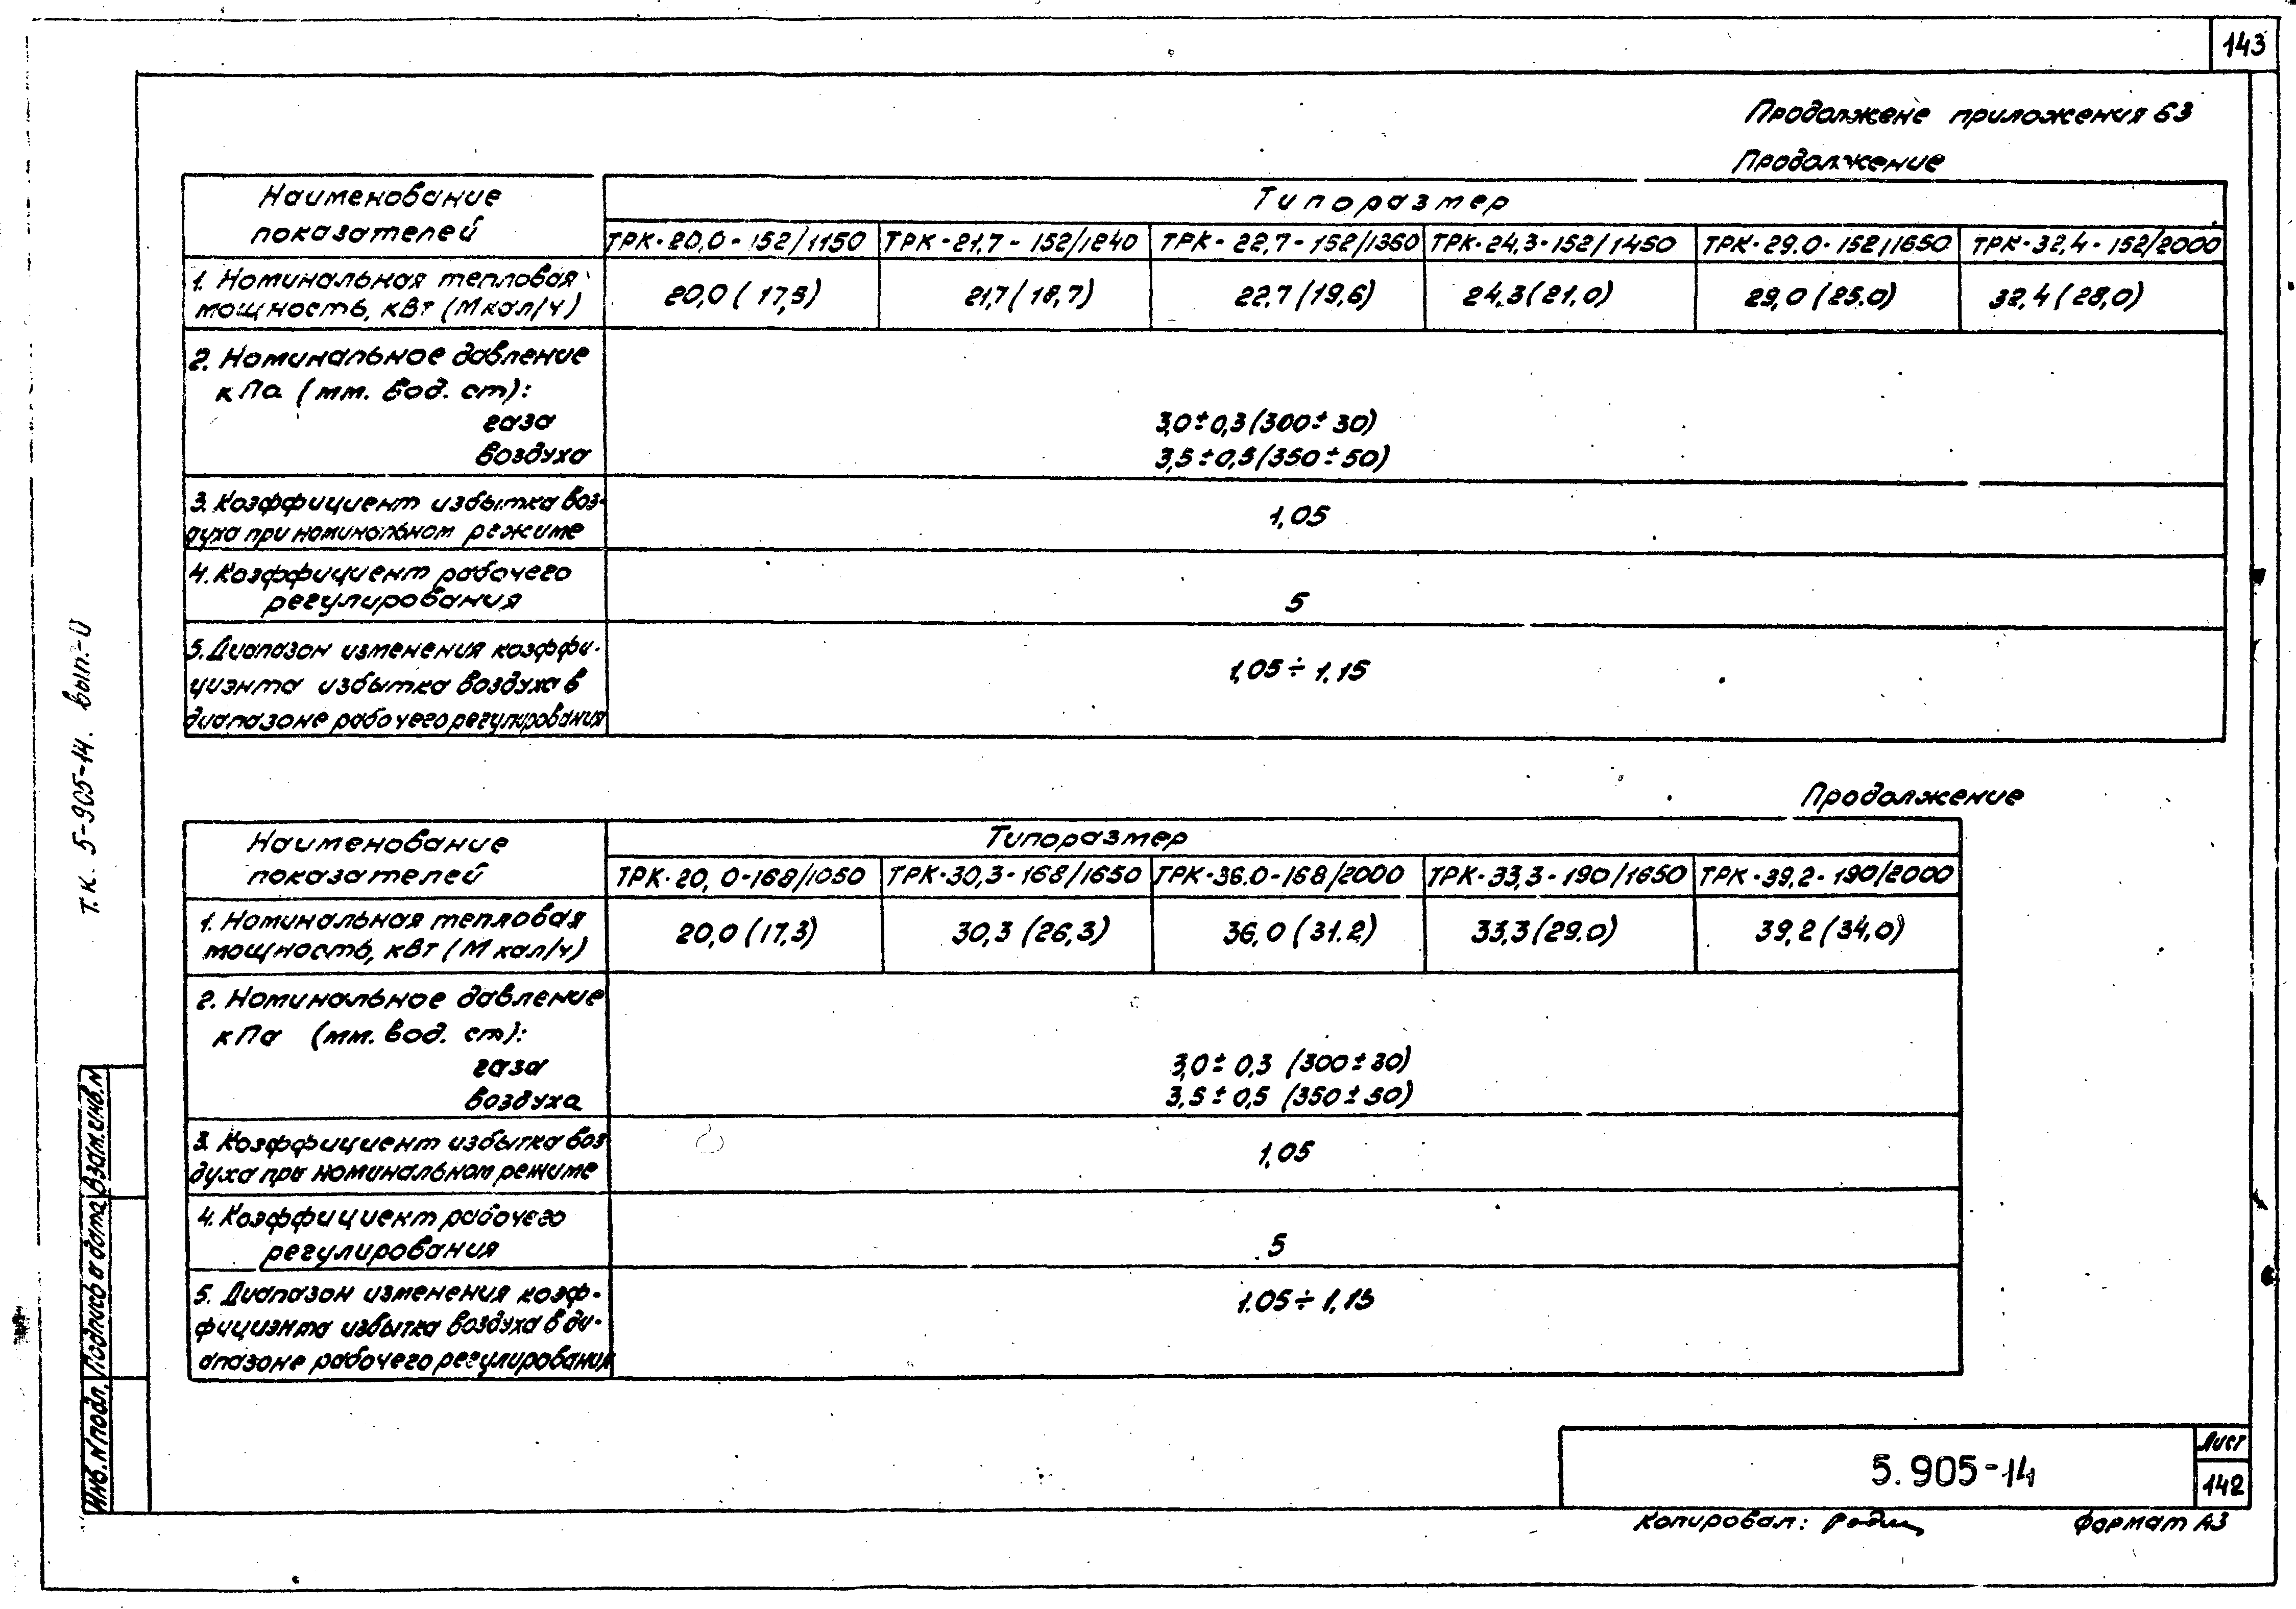 143
Продолжене приложения 63
Продолжение
Наименование показателей
Типоразмер
ТРК-20,0-152/1150 ТРК-21,7-152/1240 ТРК-22,7-152/1360 ТРК-24,3-152/1450 ТРК-29.0-152/1650 ТРК-32,4-152/2000
1. Номинальная тепловая
мощность, кВт (Мкал/ч)
20,0 (17,3) 21,7 (18,7) 22.7 (19,6) 24,3 (21.0) 29,0 (25.0) 32,4 (28,0)
2. Номинальное давление
кПа (мм. вод. ст):
газа 3,0±0,3 (300±30)
воздуха 3,5±0,5 (350±50)
3. Коэффициент избытка воз-
духа при номинальном режиме
1,05
4. Коэффициент рабочего
регулирования 5
5. Диапазон изменения коэффи-
циэнта избытка воздуха в
диапазоне рабочего регулирования
1,05÷1.15
Продолжение
Наименование показателей
Типоразмер
ТРК-20,0-168/1050 ТРК-30,3-168/1650 ТРК-36.0-168/2000 ТРК-33,3-190/1650 ТРК-39,2-190/2000
1. Номинальная тепловая
мощность, кВт (Мкал/ч)
20,0 (17,3) 30,3 (26,3) 36,0 (31.2) 33,3 (29.0) 39,2 (34,0)
2. Номинальное давление
кПа (мм. вод. ст):
газа 3,0±0,3 (300±30)
воздуха 3,5±0,5 (350±50)
3. Коэффициент избытка воз
духа при номинальном режиме
1,05
4. Коэффициент рабочего
регулирования 5
5. Диапазон изменения коэф-
фициэнта избытка воздуха в ди-
апазоне рабочего регулирования
1.05÷1,15
Т.К. 5-905-14. вып.-0
Инв.N подл. Подпись и дата Взам.инв.N
5.905-14
Лист
142
Копировал:
Формат А3